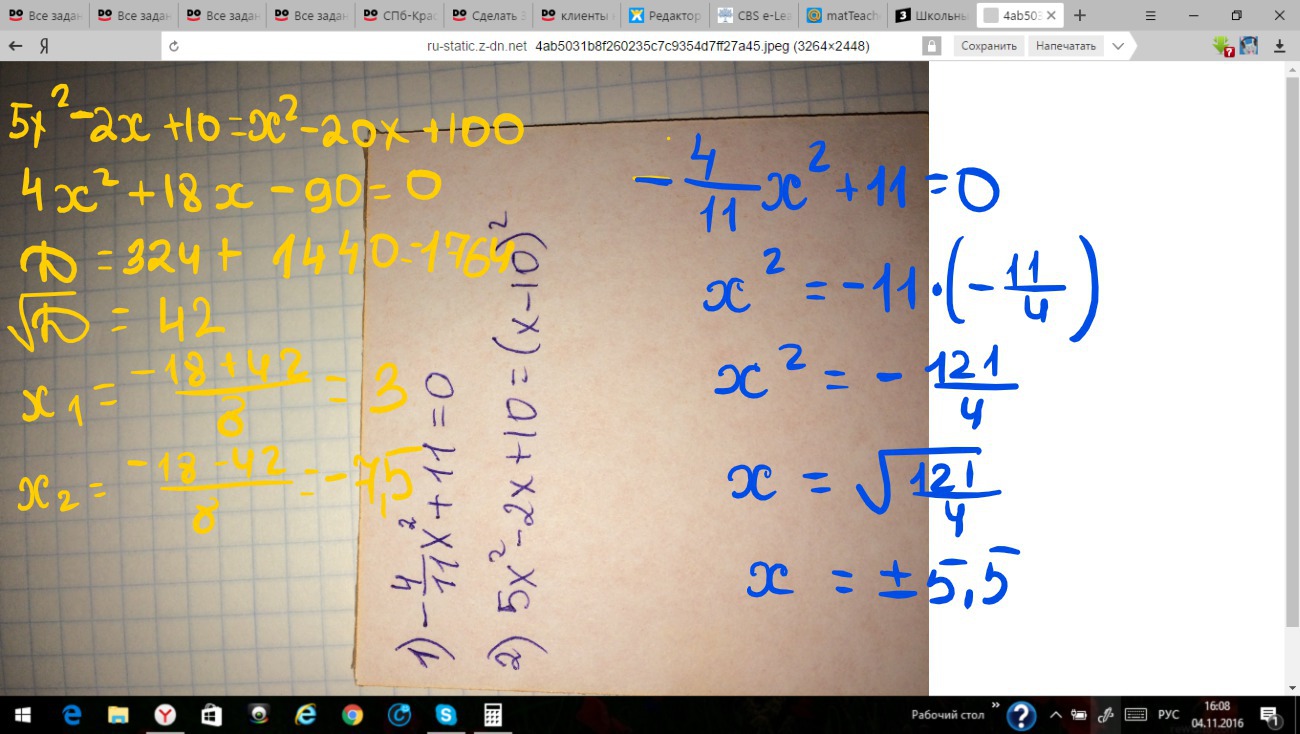 Все задан
Все задан
Все задан
Все задан
СПб-Крас
Сделать З
клиенты
Редактор
CBS e-Lea
matTeach
Школьны
4ab503
ru-static.z-dn.net 4ab5031b8f260235c7c9354d7ff27a45.jpeg (3264×2448)
Сохранить
Напечатать
5x² - 2x + 10 = x² - 20x + 100
4x² + 18x - 90 = 0
D = 324 + 1440 = 1764
√D = 42
x₁ = (-18 + 42)/8 = 3
x₂ = (-18 - 42)/8 = -7,5
1) -4/11 x² + 11 = 0
2) 5x² - 2x + 10 = (x - 10)²
-4/11 x² + 11 = 0
x² = -11 · (-11/4)
x² = -121/4
x = √121/4
x = ± 5,5
Рабочий стол
РУС
16:08
04.11.2016